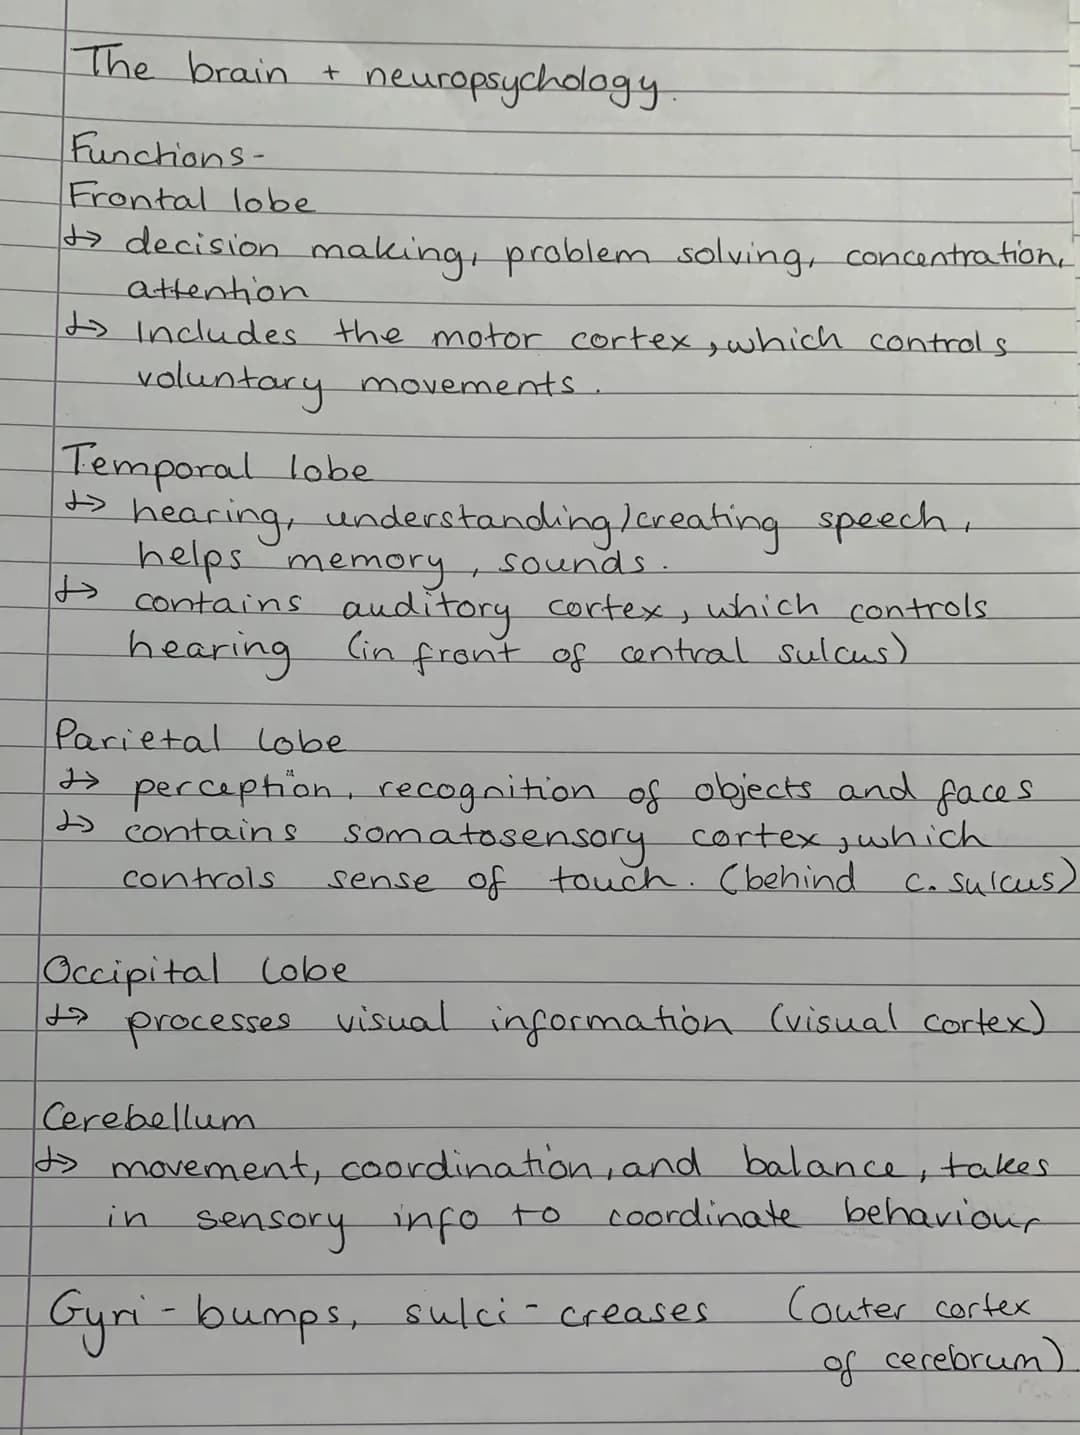 The brain + neuropsychology.
Functions-
Frontal lobe
↳ decision making, problem solving, concentration,
attention
↳ Includes the motor cortex, which controls
voluntary movements.
Temporal lobe
↳ hearing, understanding/creating speech,
helps memory, sounds.
↳ contains auditory cortex, which controls
hearing (in front of central sulcus)
Parietal lobe
↳ perception, recognition of objects and faces
↳ contains somatosensory cortex, which
controls sense of touch. (behind c. sulcus)
Occipital lobe
↳ processes visual information (visual cortex)
Cerebellum
↳ movement, coordination, and balance, takes
in sensory info to coordinate behaviour
Gyri - bumps, sulci - creases (outer cortex
of cerebrum)